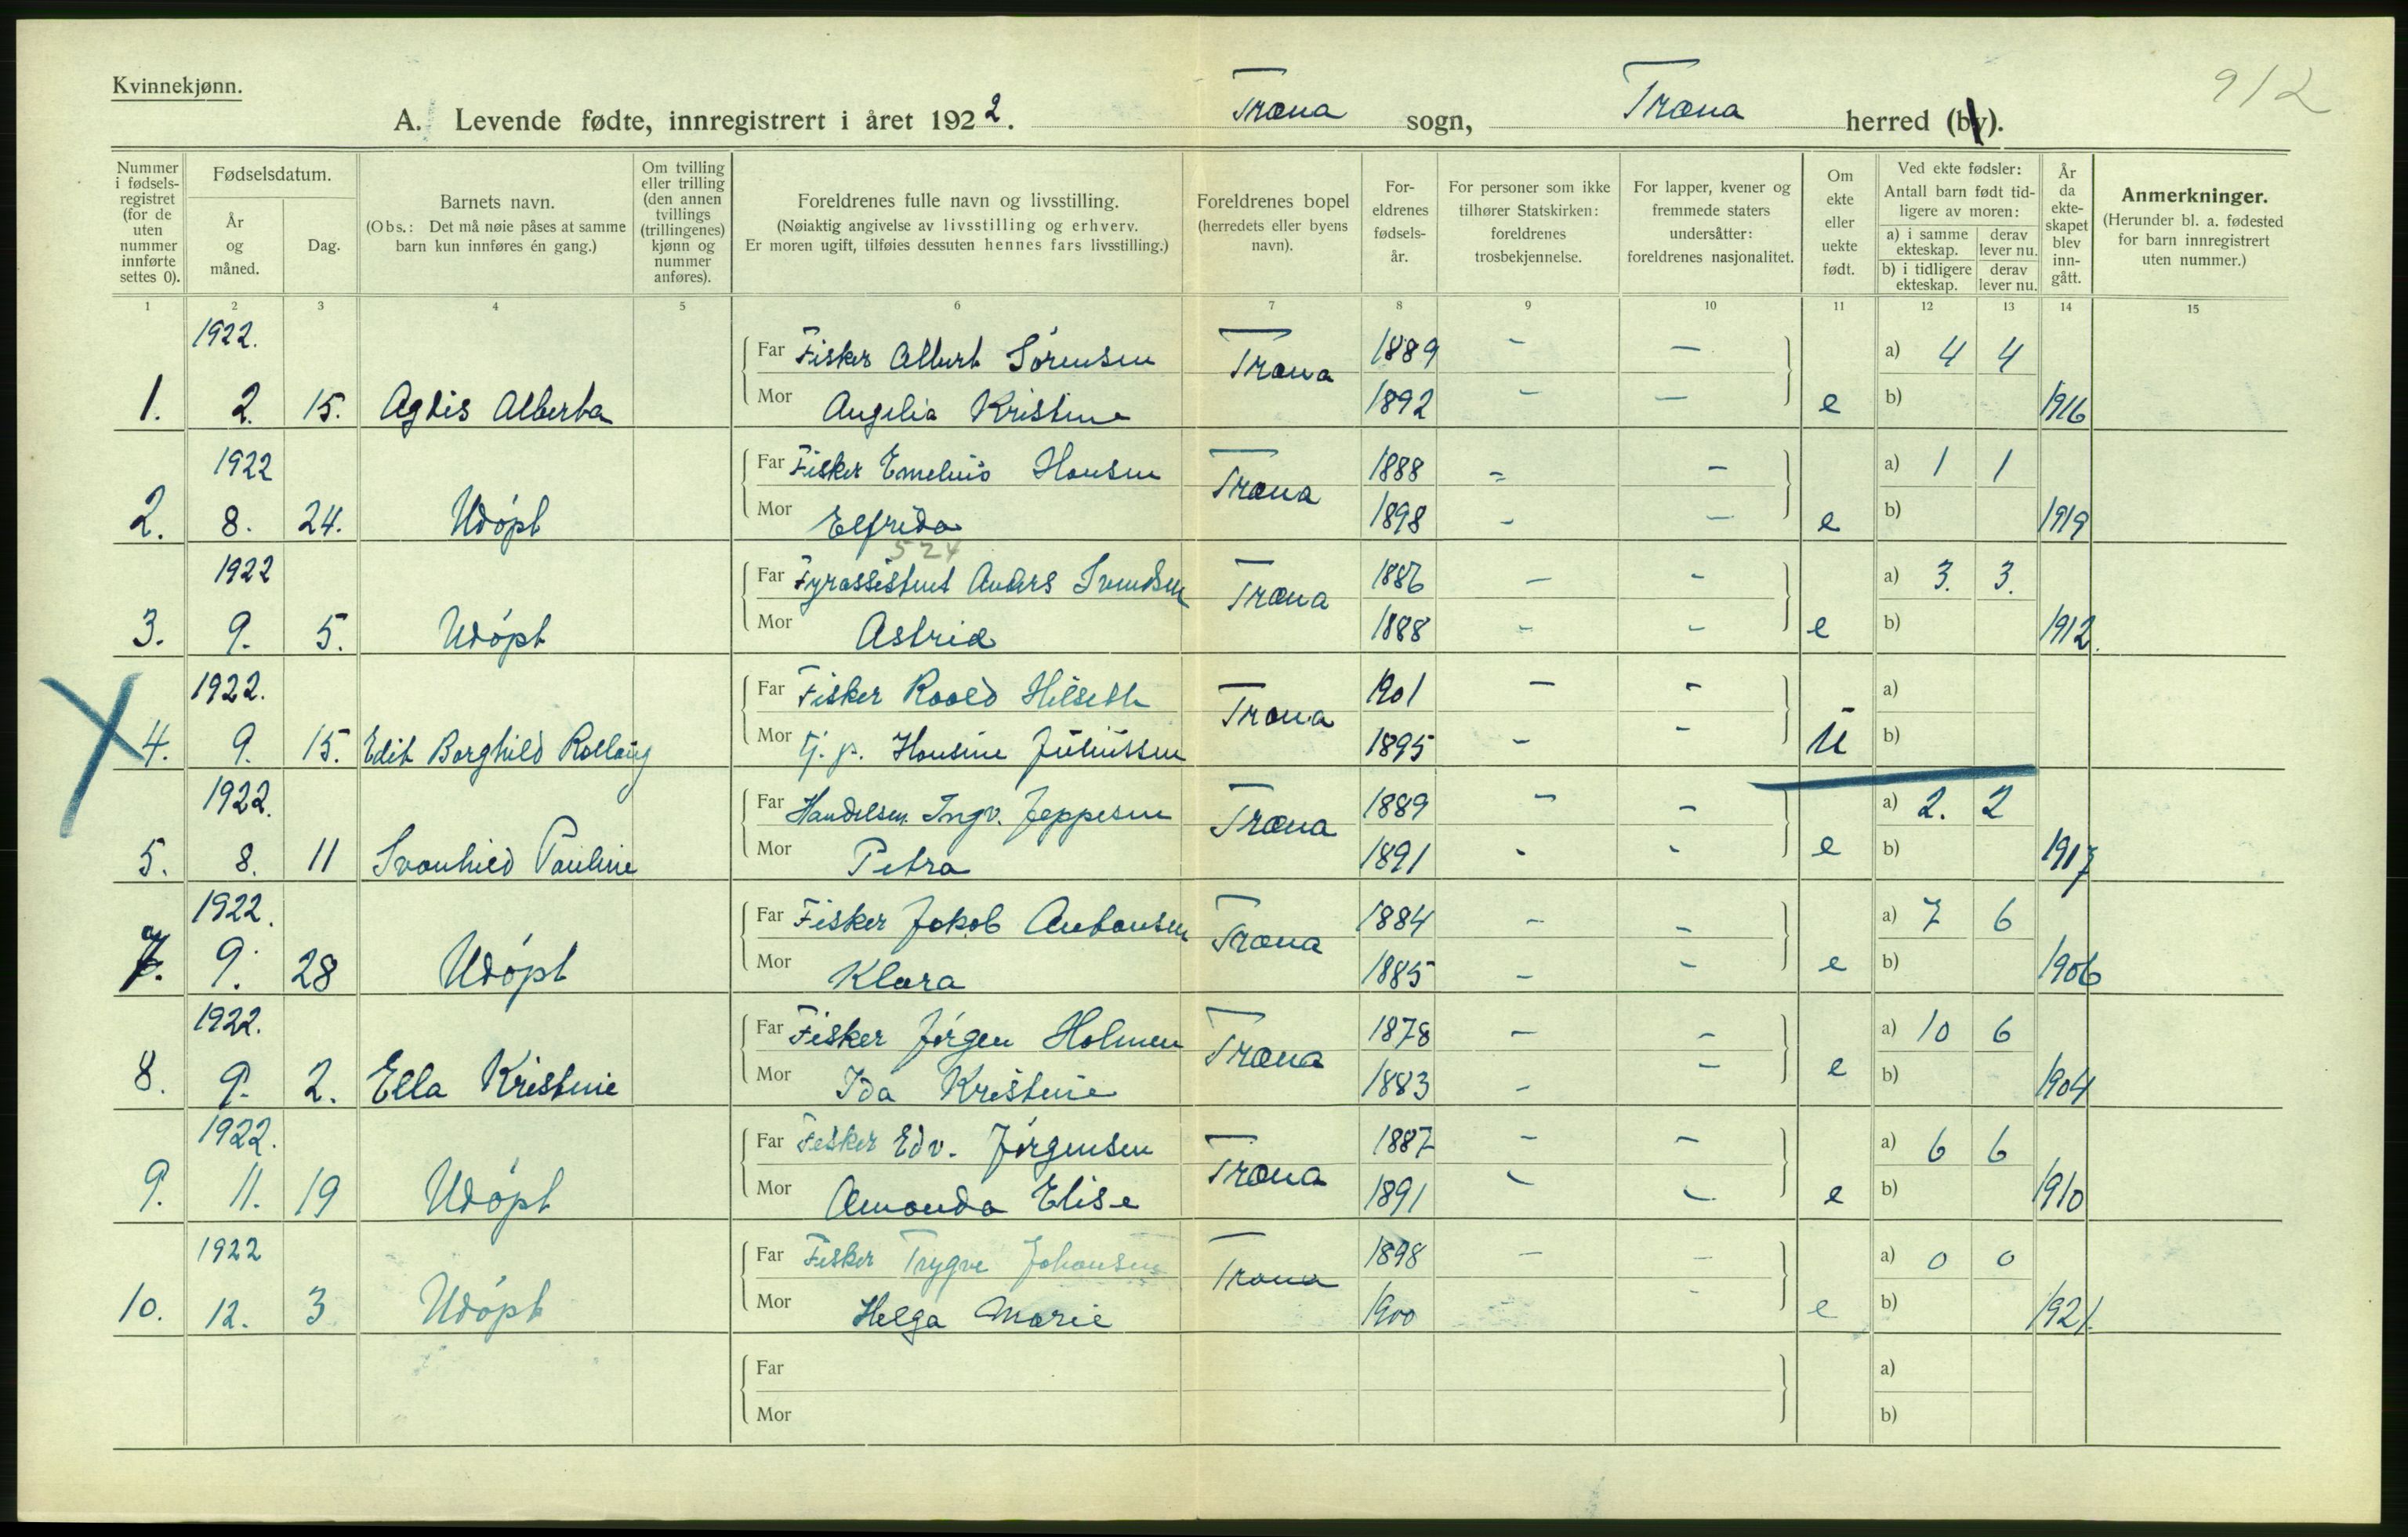 Kvinnekjønn.
912
A. Levende fødte, innregistrert i året 1922. Træna sogn, Træna herred (by).
Nummer i fødsels-registret (for de uten nummer innførte settes 0).
Fødselsdatum.
År og måned.
Dag.
Barnets navn.
(Obs.: Det må nøie påses at samme barn kun innføres én gang.)
Om tvilling eller trilling (den annen tvillings (trillingenes) kjønn og nummer anføres).
Foreldrenes fulle navn og livsstilling.
(Nøiaktig angivelse av livsstilling og erhverv.
Er moren ugift, tilføies dessuten hennes fars livsstilling.)
Foreldrenes bopel
(herredets eller byens navn).
For-eldrenes fødsels-år.
For personer som ikke tilhører Statskirken: foreldrenes trosbekjennelse.
For lapper, kvener og fremmede staters undersåtter: foreldrenes nasjonalitet.
Om ekte eller uekte født.
Ved ekte fødsler:
Antall barn født tid-ligere av moren:
a) i samme ekteskap.
derav lever nu.
b) i tidligere ekteskap.
derav lever nu.
År da ekte-skapet blev inn-gått.
Anmerkninger.
(Herunder bl. a. fødested for barn innregistrert uten nummer.)
1 2 3 4 5 6 7 8 9 10 11 12 13 14 15
1922. Far Fisker Albert Sørensen Træna 1889 - - a) 4 4
1. 2. 15. Agdis Alberta Mor Angelia Kristine 1892 - - e b) 1916
1922 Far Fisker Emelius Hansen Træna 1888 - - a) 1 1
2. 8. 24. Udøpt Mor Elfrida 1898 - - e b) 1919
524
1922 Far Fyrassistent Anders Svendsen Træna 1886 - - a) 3. 3.
3. 9. 5. Udøpt Mor Astrid 1888 - - e b) 1912.
1922. Far Fisker Roald Hilseth Træna 1901 - - a)
4. 9. 15. Edit Borghild Mor tj. p. Hansine Juliussen 1895 - - u b)
1922. Far Handelsm. Ingv. Jeppesen Træna 1889 - - a) 2. 2
5. 8. 11 Svanhild Pauline Mor Petra 1891 - - e b) 1917
1922. Far Fisker Jakob Antonsen Træna 1884 - - a) 7 6
7. 9. 28 Udøpt Mor Klara 1885 - - e b) 1906
1922. Far Fisker Jørgen Holmen Træna 1878 - - a) 10 6
8. 9. 2. Ella Kristine Mor Ida Kristine 1883 - - e b) 1904
1922. Far Fisker Edv. Jørgensen Træna 1887 - - a) 6 6
9. 11. 19 Udøpt Mor Amanda Elise 1891 - - e b) 1910
1922 Far Fisker Trygve Johansen Træna 1898 - - a) 0 0
10. 12. 3 Udøpt Mor Helga Marie 1900 - e b) 1921.
Far a)
Mor b)